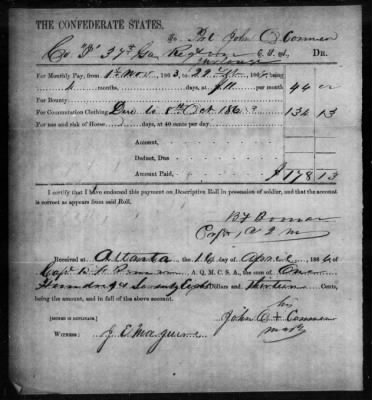 THE CONFEDERATE STATES,
To Pvt John O Conner
Co "F" 37th Ga Regt C.S.A. DR.
For Monthly Pay, from 1st Nov 1863, to 29 186 , being
4 months, days, at $11 per month 44 00
For Bounty
For Commutation Clothing Due to 8th Oct 186 134 13
For use and risk of Horse days, at 40 cents per day
Amount,
Deduct, Due
Amount Paid, $ 178 13
I certify that I have endorsed this payment on Descriptive Roll in possession of soldier, and that the account
is correct as appears from said Roll.
Capt, A Q M
Received at Atlanta the 16 day of April 1864, of
Capt A. Q. M. C. S. A., the sum of One
Hundred & Seventy Eight Dollars and thirteen Cents,
being the amount, and in full of the above account.
[SIGNED IN DUPLICATE.] his
John O + Conner
mark
WITNESS: J E Maguire